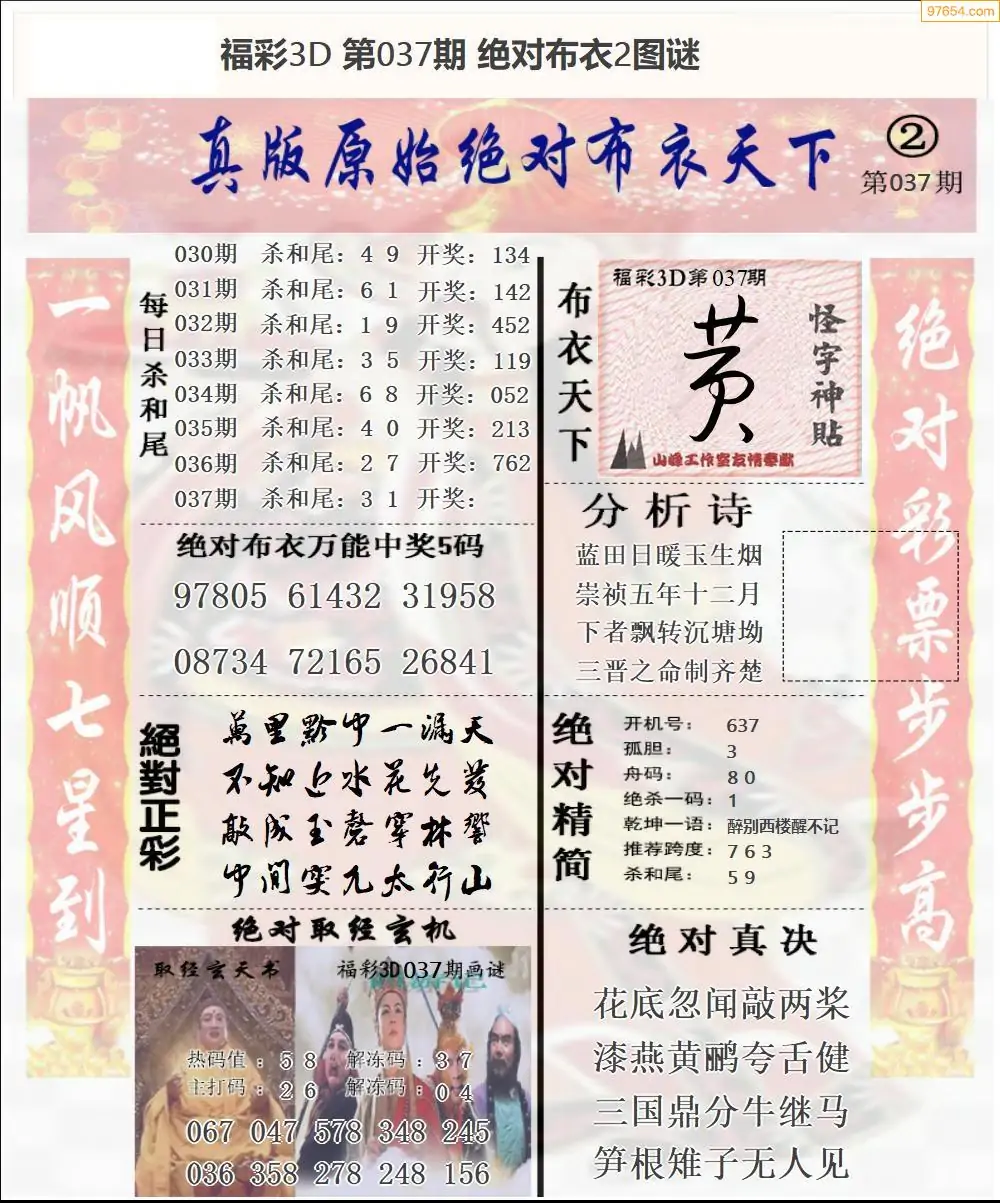 97654.com
福彩3D 第037期 绝对布衣2图谜
真版原始绝对布衣天下
②
第037期
一帆风顺七星到
每日杀和尾
030期 杀和尾：4 9 开奖：134
031期 杀和尾：6 1 开奖：142
032期 杀和尾：1 9 开奖：452
033期 杀和尾：3 5 开奖：119
034期 杀和尾：6 8 开奖：052
035期 杀和尾：4 0 开奖：213
036期 杀和尾：2 7 开奖：762
037期 杀和尾：3 1 开奖：
绝对布衣万能中奖5码
97805 61432 31958
08734 72165 26841
絕對正彩
萬里黔中一漏天
不知近水花先發
敲成玉磬穿林響
中间突兀太行山
绝对取经玄机
取经玄天书
福彩3D037期画谜
热码值：5 8 解冻码：3 7
主打码：2 6 解冻码：0 4
067 047 578 348 245
036 358 278 248 156
布衣天下
福彩3D第037期
黄
怪字神貼
山峰工作室友情奉献
分析诗
蓝田日暖玉生烟
崇祯五年十二月
下者飘转沉塘坳
三晋之命制齐楚
绝对精简
开机号：637
孤胆：3
舟码：8 0
绝杀一码：1
乾坤一语：醉别西楼醒不记
推荐跨度：7 6 3
杀和尾：5 9
绝对真决
花底忽闻敲两桨
漆燕黄鹂夸舌健
三国鼎分牛继马
笋根雉子无人见
绝对彩票步步高